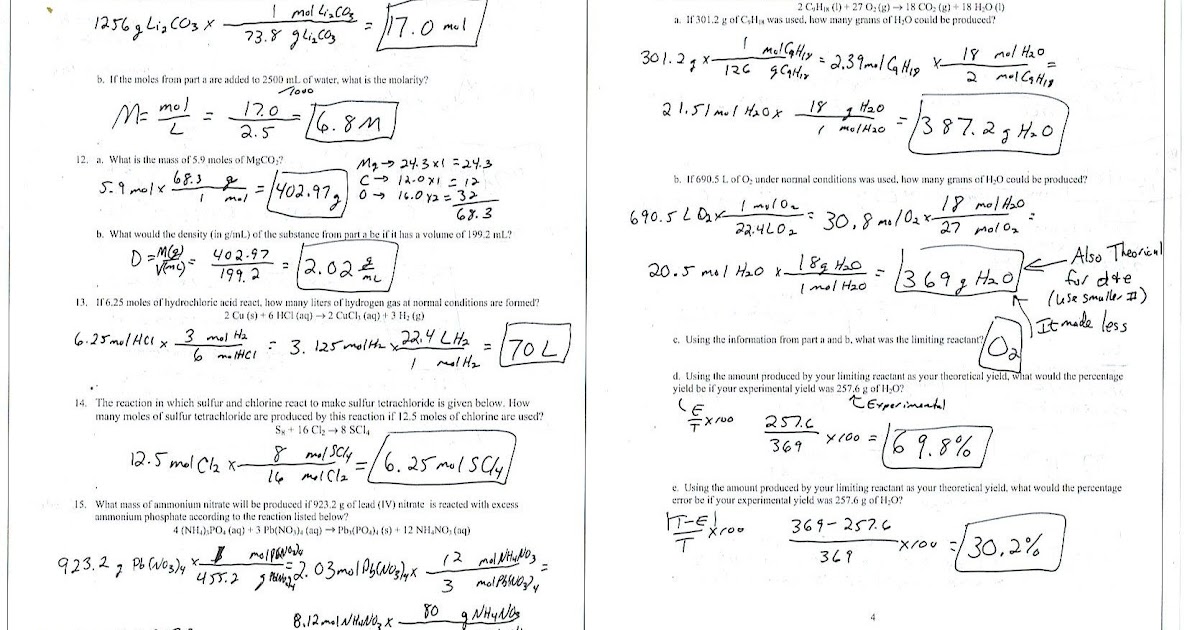 1256 g Li2CO3 x 1 mol Li2CO3 / 73.8 g Li2CO3 = 17.0 mol
b. If the moles from part a are added to 2500 mL of water, what is the molarity?
/1000
M = mol / L = 17.0 / 2.5 = 6.8 M
12. a. What is the mass of 5.9 moles of MgCO2?
5.9 mol x 68.3 g / 1 mol = 402.97 g
Mg → 24.3 x 1 = 24.3
C → 12.0 x 1 = 12
O → 16.0 x 2 = 32
68.3
b. What would the density (in g/mL) of the substance from part a be if it has a volume of 199.2 mL?
D = M(g) / V(mL) = 402.97 / 199.2 = 2.02 g/mL
13. If 6.25 moles of hydrochloric acid react, how many liters of hydrogen gas at normal conditions are formed?
2 Cu (s) + 6 HCl (aq) → 2 CuCl3 (aq) + 3 H2 (g)
6.25 mol HCl x 3 mol H2 / 6 mol HCl = 3.125 mol H2 x 22.4 L H2 / 1 mol H2 = 70 L
14. The reaction in which sulfur and chlorine react to make sulfur tetrachloride is given below. How
many moles of sulfur tetrachloride are produced by this reaction if 12.5 moles of chlorine are used?
S8 + 16 Cl2 → 8 SCl4
12.5 mol Cl2 x 8 mol SCl4 / 16 mol Cl2 = 6.25 mol SCl4
15. What mass of ammonium nitrate will be produced if 923.2 g of lead (IV) nitrate is reacted with excess
ammonium phosphate according to the reaction listed below?
4 (NH4)3PO4 (aq) + 3 Pb(NO3)4 (aq) → Pb3(PO4)4 (s) + 12 NH4NO3 (aq)
923.2 g Pb(NO3)4 x 1 mol Pb(NO3)4 / 455.2 g Pb(NO3)4 = 2.03 mol Pb(NO3)4 x 12 mol NH4NO3 / 3 mol Pb(NO3)4 =
8.12 mol NH4NO3 x 80 g NH4NO3
2 C9H18 (l) + 27 O2 (g) → 18 CO2 (g) + 18 H2O (l)
a. If 301.2 g of C9H18 was used, how many grams of H2O could be produced?
301.2 g x 1 mol C9H18 / 126 g C9H18 = 2.39 mol C9H18 x 18 mol H2O / 2 mol C9H18 =
21.51 mol H2O x 18 g H2O / 1 mol H2O = 387.2 g H2O
b. If 690.5 L of O2 under normal conditions was used, how many grams of H2O could be produced?
690.5 L O2 x 1 mol O2 / 22.4 L O2 = 30.8 mol O2 x 18 mol H2O / 27 mol O2 =
20.5 mol H2O x 18 g H2O / 1 mol H2O = 369 g H2O
Also Theorical
for d+e
(use smaller #)
It made less
c. Using the information from part a and b, what was the limiting reactant?
O2
d. Using the amount produced by your limiting reactant as your theoretical yield, what would the percentage
yield be if your experimental yield was 257.6 g of H2O?
Experimental
E / T x 100 257.6 / 369 x 100 = 69.8%
e. Using the amount produced by your limiting reactant as your theoretical yield, what would the percentage
error be if your experimental yield was 257.6 g of H2O?
|T-E| / T x 100 369 - 257.6 / 369 x 100 = 30.2%
4